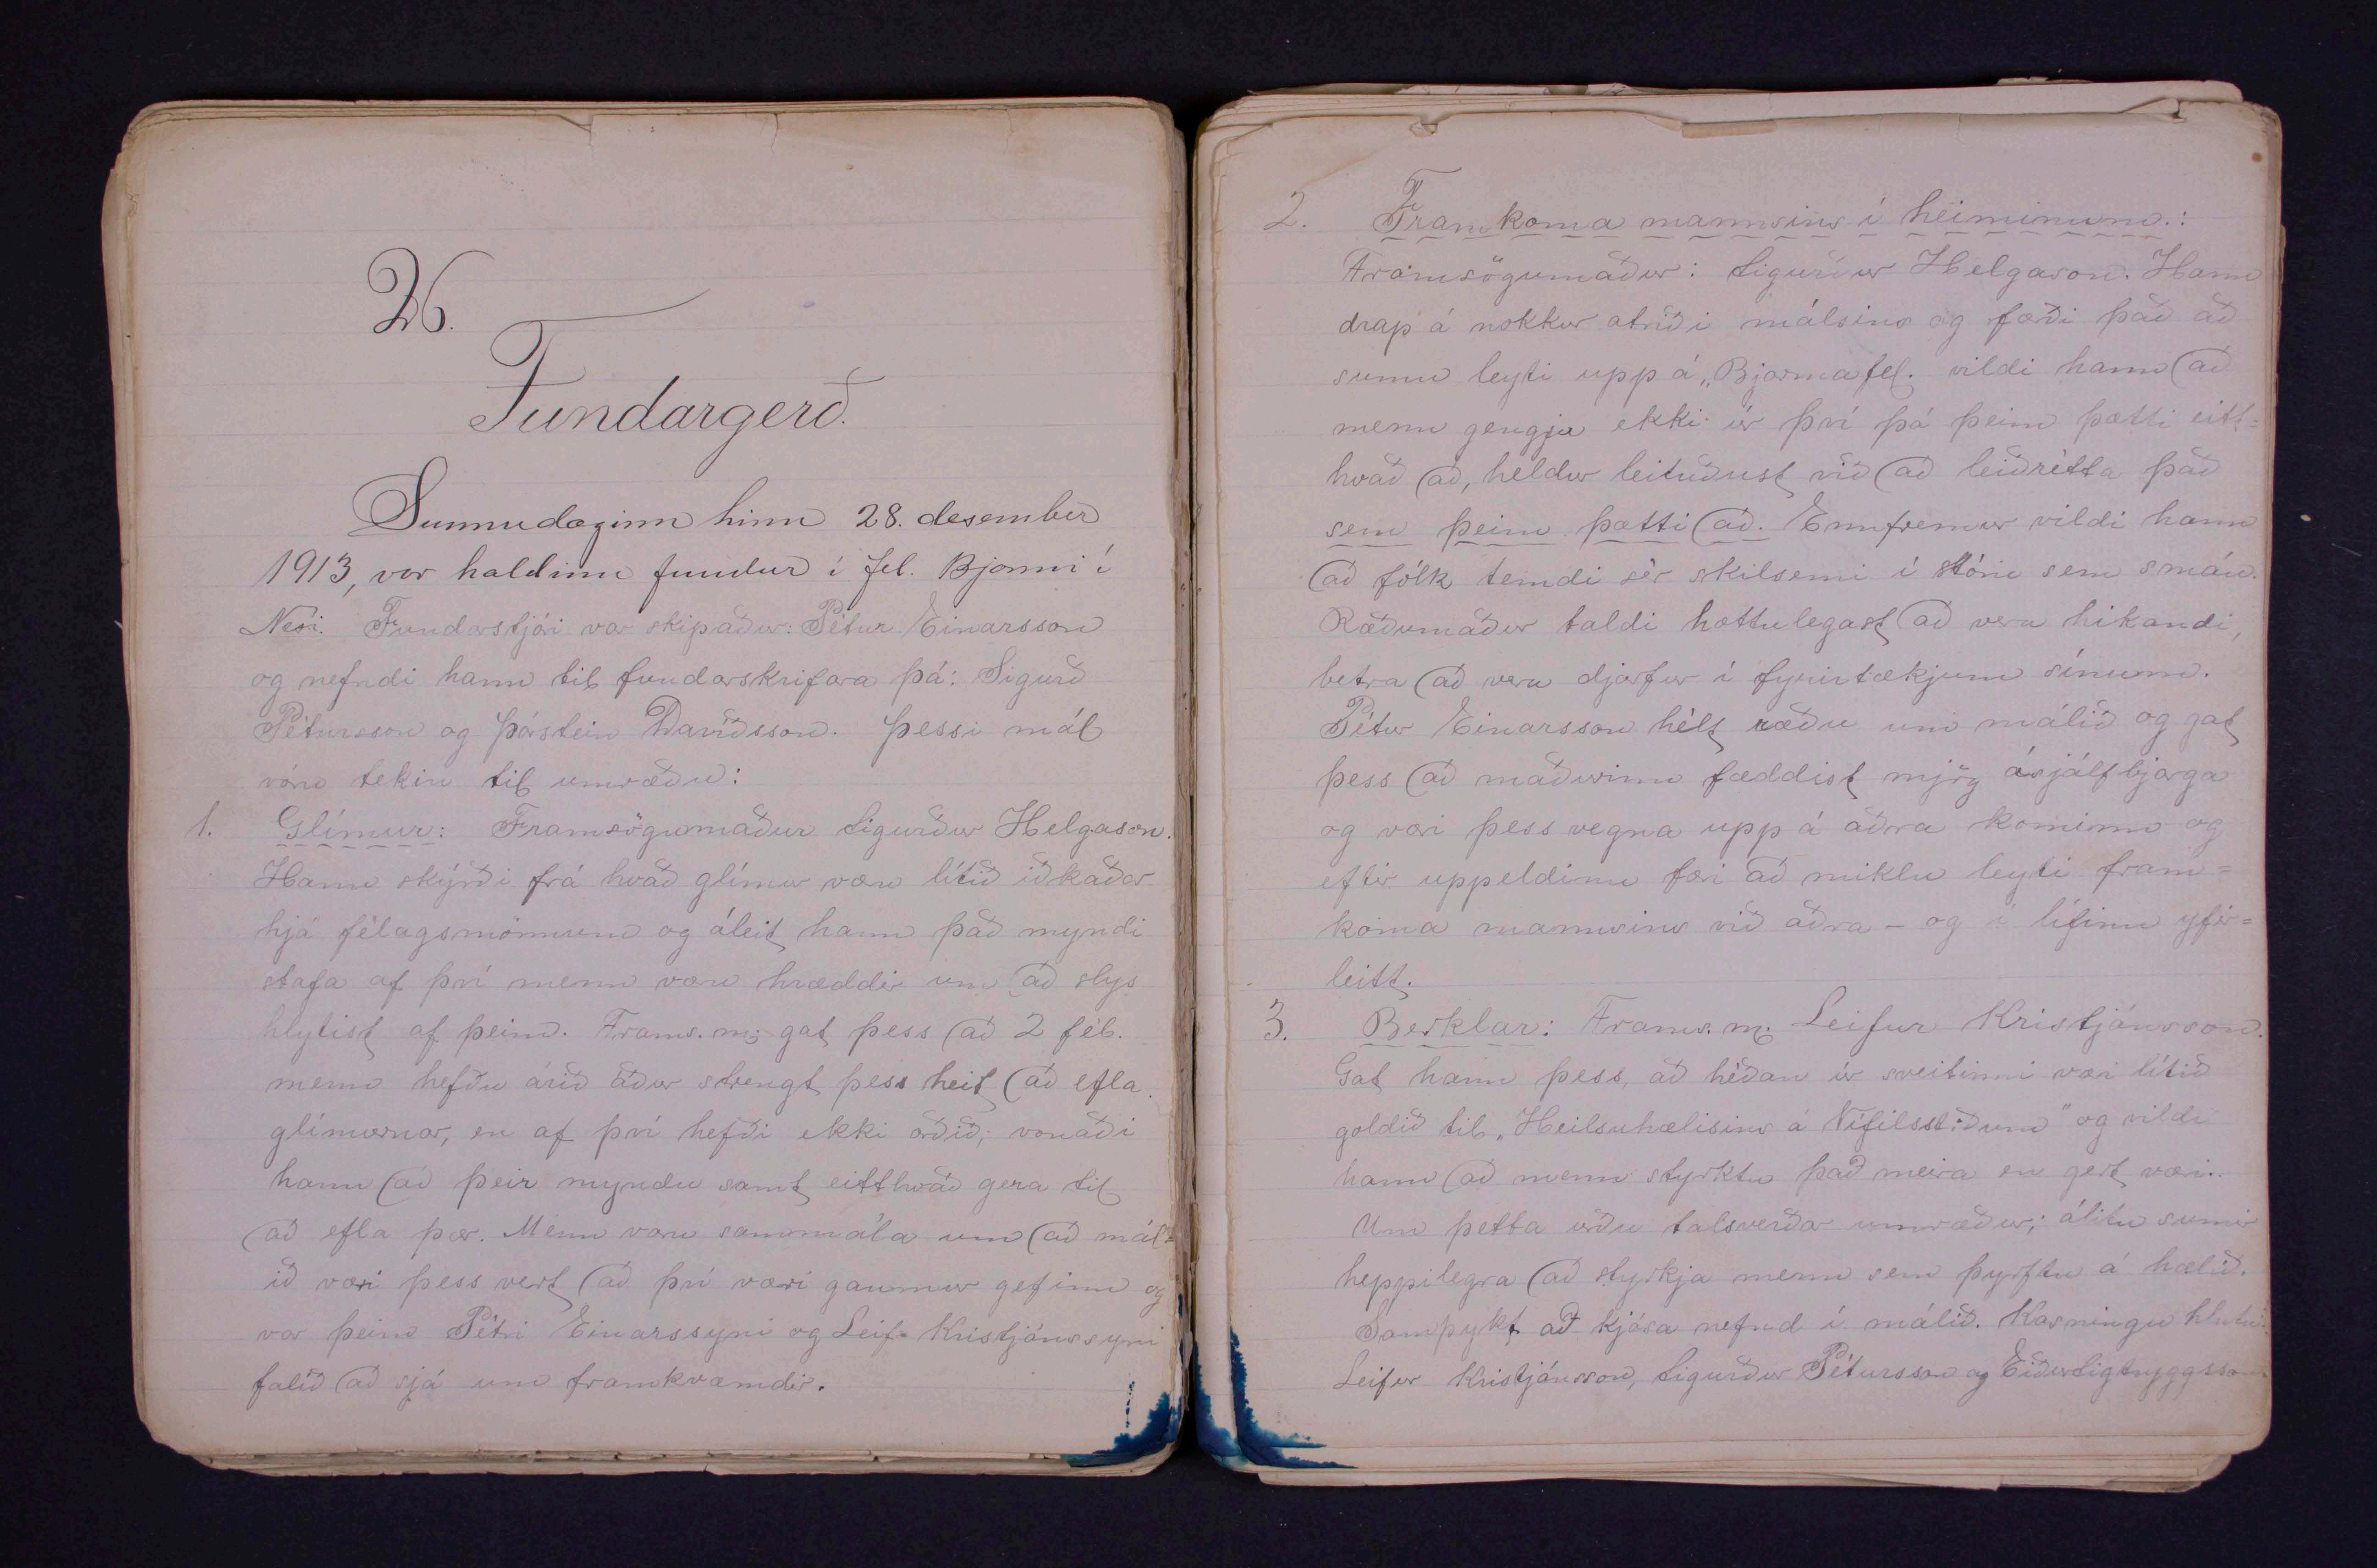 26.
Fundargerð.
Sunnudaginn hinn 28. desember
1913, var haldinn fundur í fél. Bjarmi í
Nesi. Fundarstjóri var skipaður: Pétur Einarsson
og nefndi hann til fundarskrifara þá: Sigurð
Pétursson og Þórstein Davíðsson. Þessi mál
vóru tekin til umræðu:
1. Glímur: Framsögumaður Sigurður Helgason.
Hann skýrði frá hvað glímur væru lítið iðkaðar
hjá félagsmönnum og áleit hann það myndi
stafa af því menn væru hræddir um að slys
hlytist af þeim. Frams.m. gat þess að 2 fél.
menn hefðu árið áður strengt þess heit að efla
glímurnar, en af því hefði ekki orðið; vonaði
hann að þeir myndu samt eitthvað gera til
að efla þær. Menn voru sammála um að mál=
ið væri þess vert að því væri gaumur gefinn og
var þeim Pétri Einarssyni og Leif. Kristjánssyni
falið að sjá um framkvæmdir.
2. Framkoma mannsins í heiminum.:
Framsögumaður: Sigurður Helgason. Hann
drap á nokkur atriði málsins og færði það að
sumu leyti upp á „Bjarmafél. vildi hann að
menn gengju ekki úr því þá þeim þætti eitt=
hvað að, heldur leituðust við að leiðrétta það
sem þeim þætti að. Ennfremur vildi hann
að fólk temdi sér skilsemi í stóru sem smáu.
Ræðumaður taldi hættulegast að vera hikandi,
betra að vera djarfur í fyrirtækjum sínum.
Pétur Einarsson hélt ræðu um málið og gat
þess að maðurinn fæddist mjög ósjálfbjarga
og væri þess vegna upp á aðra kominn og
eftir uppeldinu færi að miklu leyti fram=
koma mannsins við aðra – og í lífinu yfir=
leitt.
3. Berklar: Frams.m. Leifur Kristjánsson.
Gat hann þess, að héðan úr sveitinni væri lítið
goldið til „Heilsuhælisins á Vífilsstöðum" og vildi
hann að menn styrktu það meira en gert væri.
Um þetta urðu talsverðar umræður; álitu sumir
heppilegra að styrkja menn sem þyrftu á hælið.
Samþykt að kjósa nefnd í málið. Kosningu hlutu
Leifur Kristjánsson, Sigurður Pétursson og Eiður Sigtryggsson